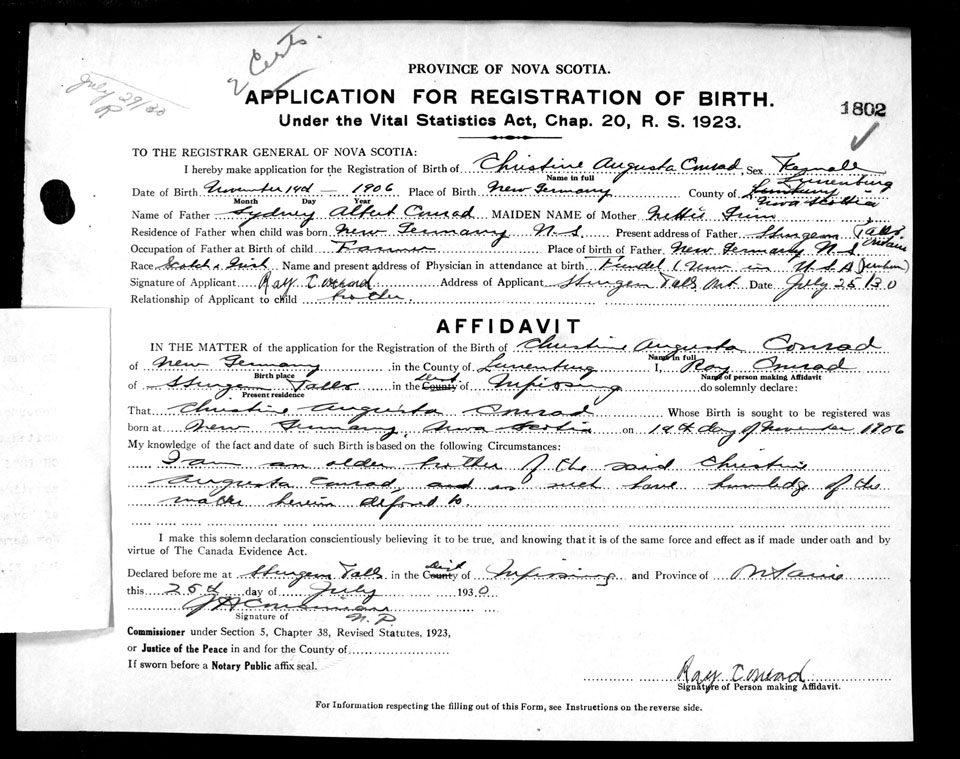 2 Certs.
July 29/30
PROVINCE OF NOVA SCOTIA.
APPLICATION FOR REGISTRATION OF BIRTH.
Under the Vital Statistics Act, Chap. 20, R. S. 1923.
1802
TO THE REGISTRAR GENERAL OF NOVA SCOTIA:
I hereby make application for the Registration of Birth of Christine Augusta Conrad Sex Female
Name in full
Date of Birth November 14th – 1906 Place of Birth New Germany County of Lunenburg Nova Scotia
Month Day Year
Name of Father Sydney Albert Conrad MAIDEN NAME of Mother Nettie
Residence of Father when child was born New Germany N.S Present address of Father Sturgeon Falls Ontario
Occupation of Father at Birth of child Farmer Place of birth of Father New Germany N.S
Race Scotch & Irish Name and present address of Physician in attendance at birth in U.S.A
Signature of Applicant Ray Conrad Address of Applicant Sturgeon Falls Ont. Date July 25/30
Relationship of Applicant to child brother.
AFFIDAVIT
IN THE MATTER of the application for the Registration of the Birth of Christine Augusta Conrad
Name in full
of New Germany in the County of Lunenburg I, Ray Conrad
Birth place Name of person making Affidavit
of Sturgeon Falls in the County Dist. of Nipissing do solemnly declare:
Present residence
That Christine Augusta Conrad Whose Birth is sought to be registered was
born at New Germany, Nova Scotia on 14th day of November 1906
My knowledge of the fact and date of such Birth is based on the following Circumstances:
I am an older brother of the said Christine
Augusta Conrad, and as such have knowledge of the
matter herein defored to.
I make this solemn declaration conscientiously believing it to be true, and knowing that it is of the same force and effect as if made under oath and by
virtue of The Canada Evidence Act.
Declared before me at Sturgeon Falls in the County Dist of Nipissing and Province of Ontario
this 25th day of July 1930
Signature of N.P.
Commissioner under Section 5, Chapter 38, Revised Statutes, 1923,
or Justice of the Peace in and for the County of
If sworn before a Notary Public affix seal.
Ray Conrad
Signature of Person making Affidavit.
For Information respecting the filling out of this Form, see Instructions on the reverse side.